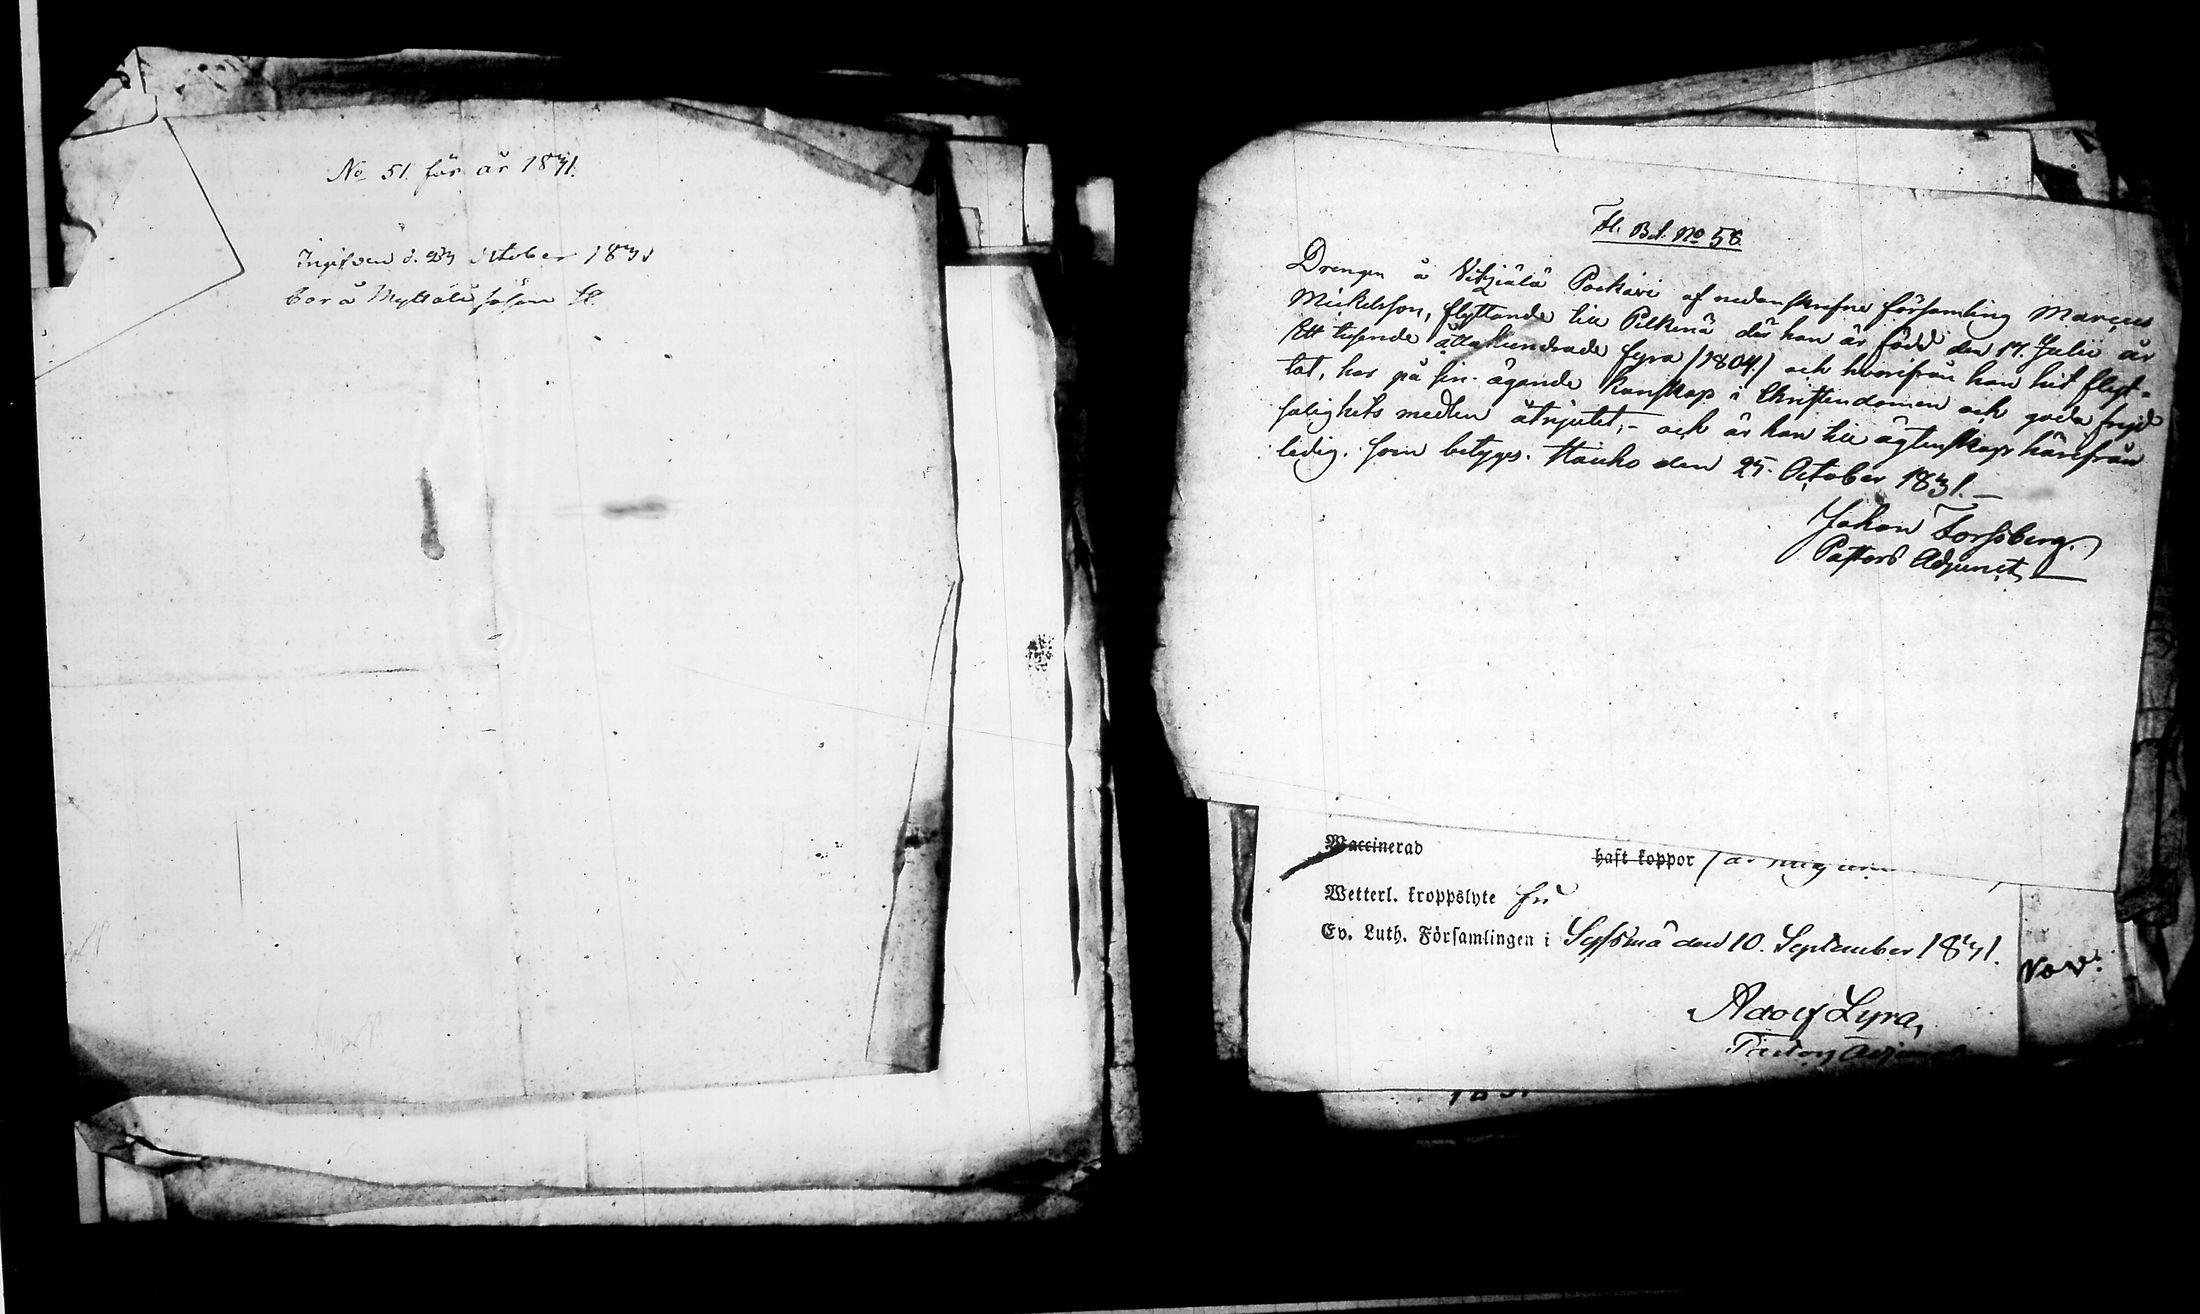 No 51. för år 1831.
Ingifven d. 23 October 1831
bor å Myttälä
Fl. Bet. No 58.
Drengen å Vitziälä Poekari af nedanskrefne församling Marcus
Mickelsson, flyttande till Pelkenä der han är född den 17. Julii år
Ett tusende åttahundrade fyra (1804.) och hvarifrån han hit flyt-
tat, har på sin ägande kunskap i Christendomen och goda frejd
salighets medlen åtnjutit,- och är han till ägtenskap härifrån
ledig. Som betygas. Hauho den 25. October 1831.-
Johan Forssberg.
Pastors Adjunct
Waccinerad haft koppor
Wetterl. kroppslyte
Ev. Luth. Församlingen i Syssmä den 10. September 1831.
Nov.
Adolf Lyra,